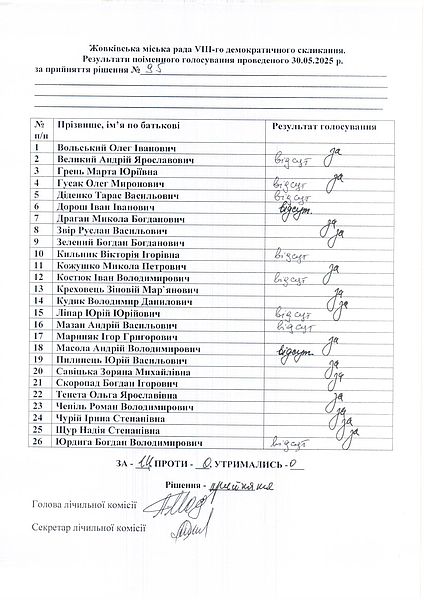 Жовківська міська рада VIII-го демократичного скликання.
Результати поіменного голосування проведеного 30.05.2025 р.
за прийняття рішення № 95
№ п/п Прізвище, ім’я по батькові Результат голосування
1 Вольський Олег Іванович за
2 Великий Андрій Ярославович відсут
3 Грень Марта Юріївна за
4 Гусак Олег Миронович відсут
5 Діденко Тарас Васильович відсут
6 Дорош Іван Іванович відсут.
7 Драган Микола Богданович
8 Звір Руслан Васильович за
9 Зелений Богдан Богданович за
10 Кильник Вікторія Ігорівна відсут
11 Кожушко Микола Петрович за
12 Костюк Іван Володимирович відсут
13 Креховець Зіновій Мар`янович за
14 Кудик Володимир Данилович за
15 Ліпар Юрій Юрійович відсут
16 Мазан Андрій Васильович відсут
17 Мариняк Ігор Григорович за
18 Масола Андрій Володимирович відсут.
19 Пилипець Юрій Васильович за
20 Савіцька Зоряна Михайлівна за
21 Скоропад Богдан Ігорович
22 Тенета Ольга Ярославівна за
23 Чепіль Роман Володимирович за
24 Чурій Ірина Степанівна за
25 Щур Надія Степанівна за
26 Юрдига Богдан Володимирович відсут
ЗА - 14 ПРОТИ - 0 УТРИМАЛИСЬ - 0
Рішення - прийняття
Голова лічильної комісії
Секретар лічильної комісії